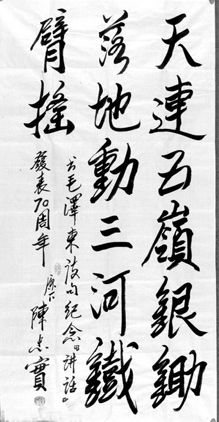 天連五嶺銀鋤
落地動三河鐵
臂搖
书毛澤東诗句紀念《讲话》
發表70周年
原下
陳忠實